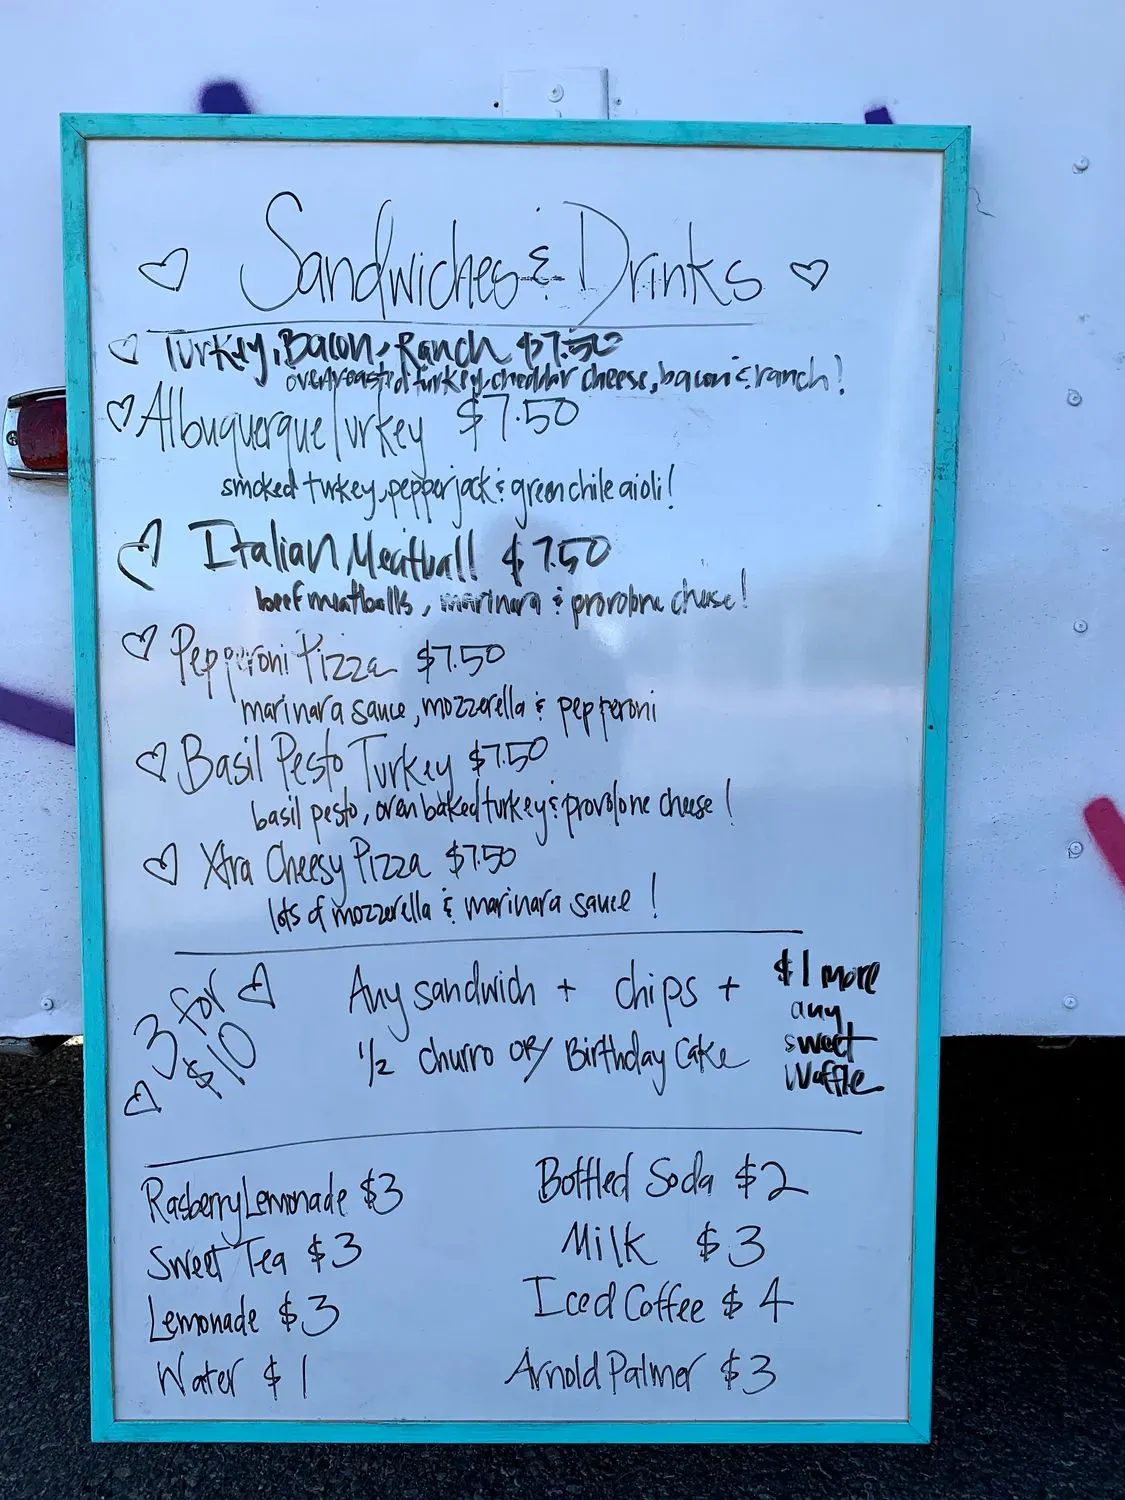 Sandwiches & Drinks
Turkey, Bacon, Ranch $7.50
oven roasted turkey, cheddar cheese, bacon & ranch!
Albuquerque Turkey $7.50
smoked turkey, pepperjack & green chile aioli!
Italian Meatball $7.50
beef meatballs, marinara & provolone cheese!
Pepperoni Pizza $7.50
marinara sauce, mozzerella & pepperoni
Basil Pesto Turkey $7.50
basil pesto, oven baked turkey & provolone cheese!
Xtra Cheesy Pizza $7.50
lots of mozzerella & marinara sauce!
3 for
$10
Any sandwich + chips +
1/2 churro or Birthday Cake
$1 more
any
sweet
Waffle
Rasberry Lemonade $3
Sweet Tea $3
Lemonade $3
Water $1
Bottled Soda $2
Milk $3
Iced Coffee $4
Arnold Palmer $3